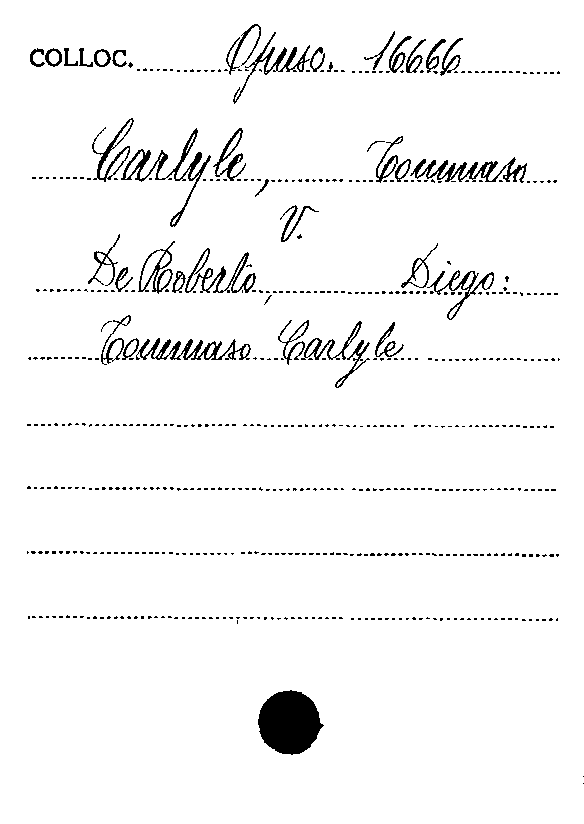 COLLOC. Opusc. 16666
Carlyle, Tommaso
V.
De Roberto, Diego:
Tommaso Carlyle